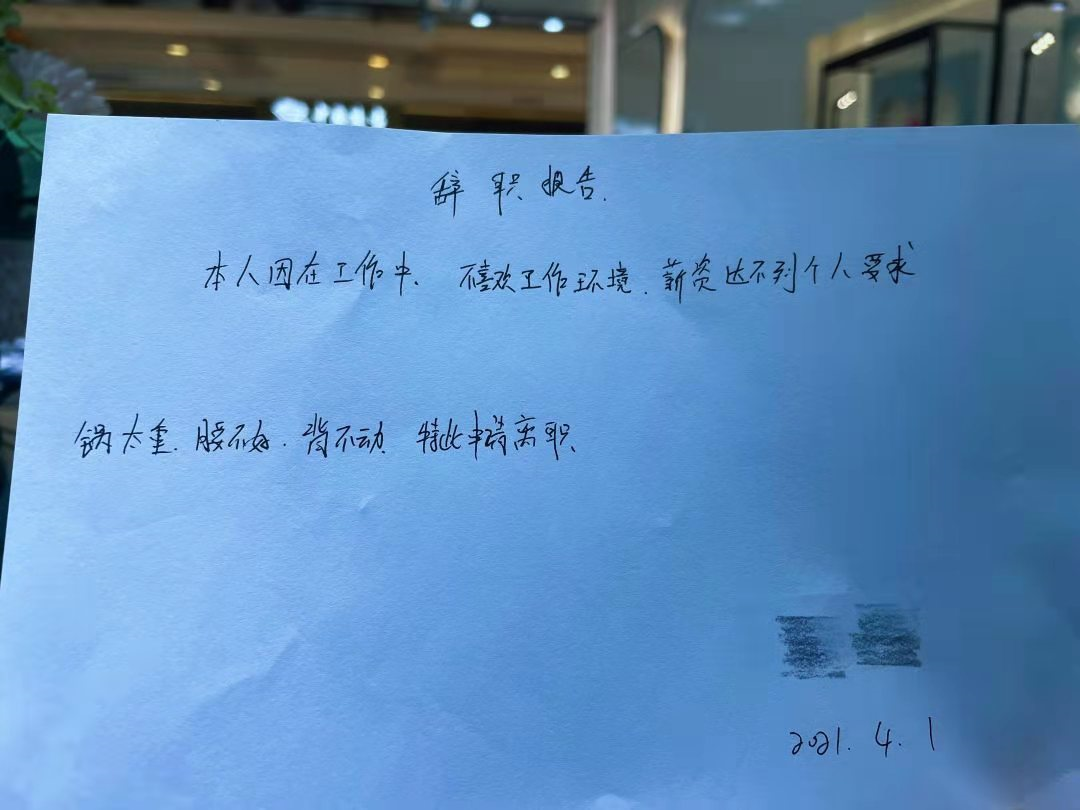 辞职报告.
本人因在工作中、不喜欢工作环境、薪资达不到个人要求
锅太重、腰不好、背不动、特此申请离职、
2021.4.1